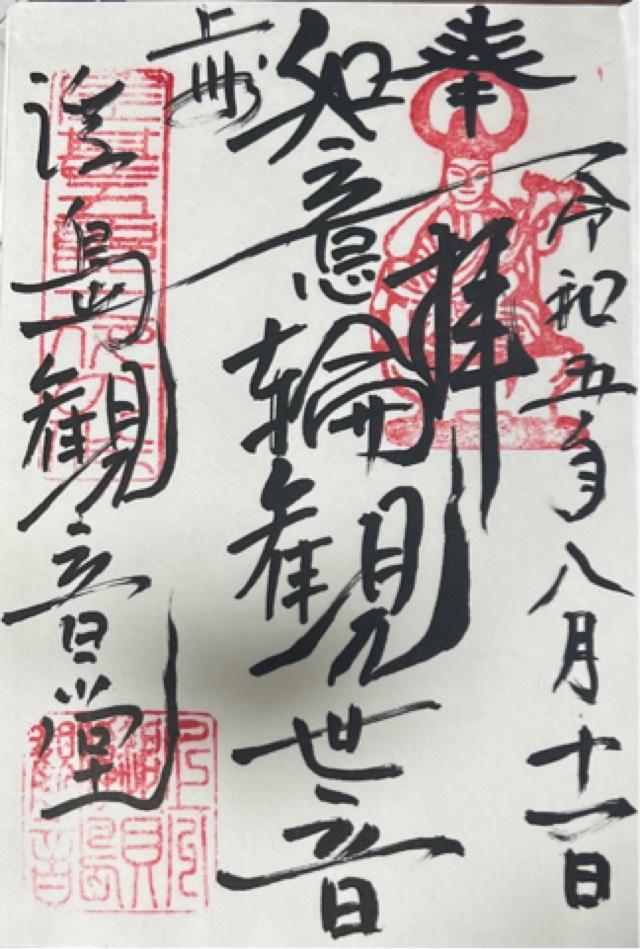 奉拝
令和五年八月十一日
如意輪観世音
上州
浮島観音堂